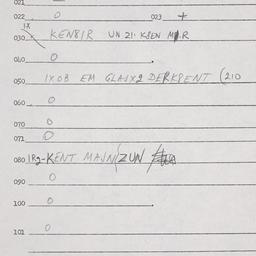 021
022 0 023 +
IX
030 KENBIR UN 21. KBEN
040 0
050 IXOB EM GLAIX2 DERKPENT (210
060 0
070 0
071 0
080 1R2-KENT MAJN/ZUN
090 0
100 0
101 0